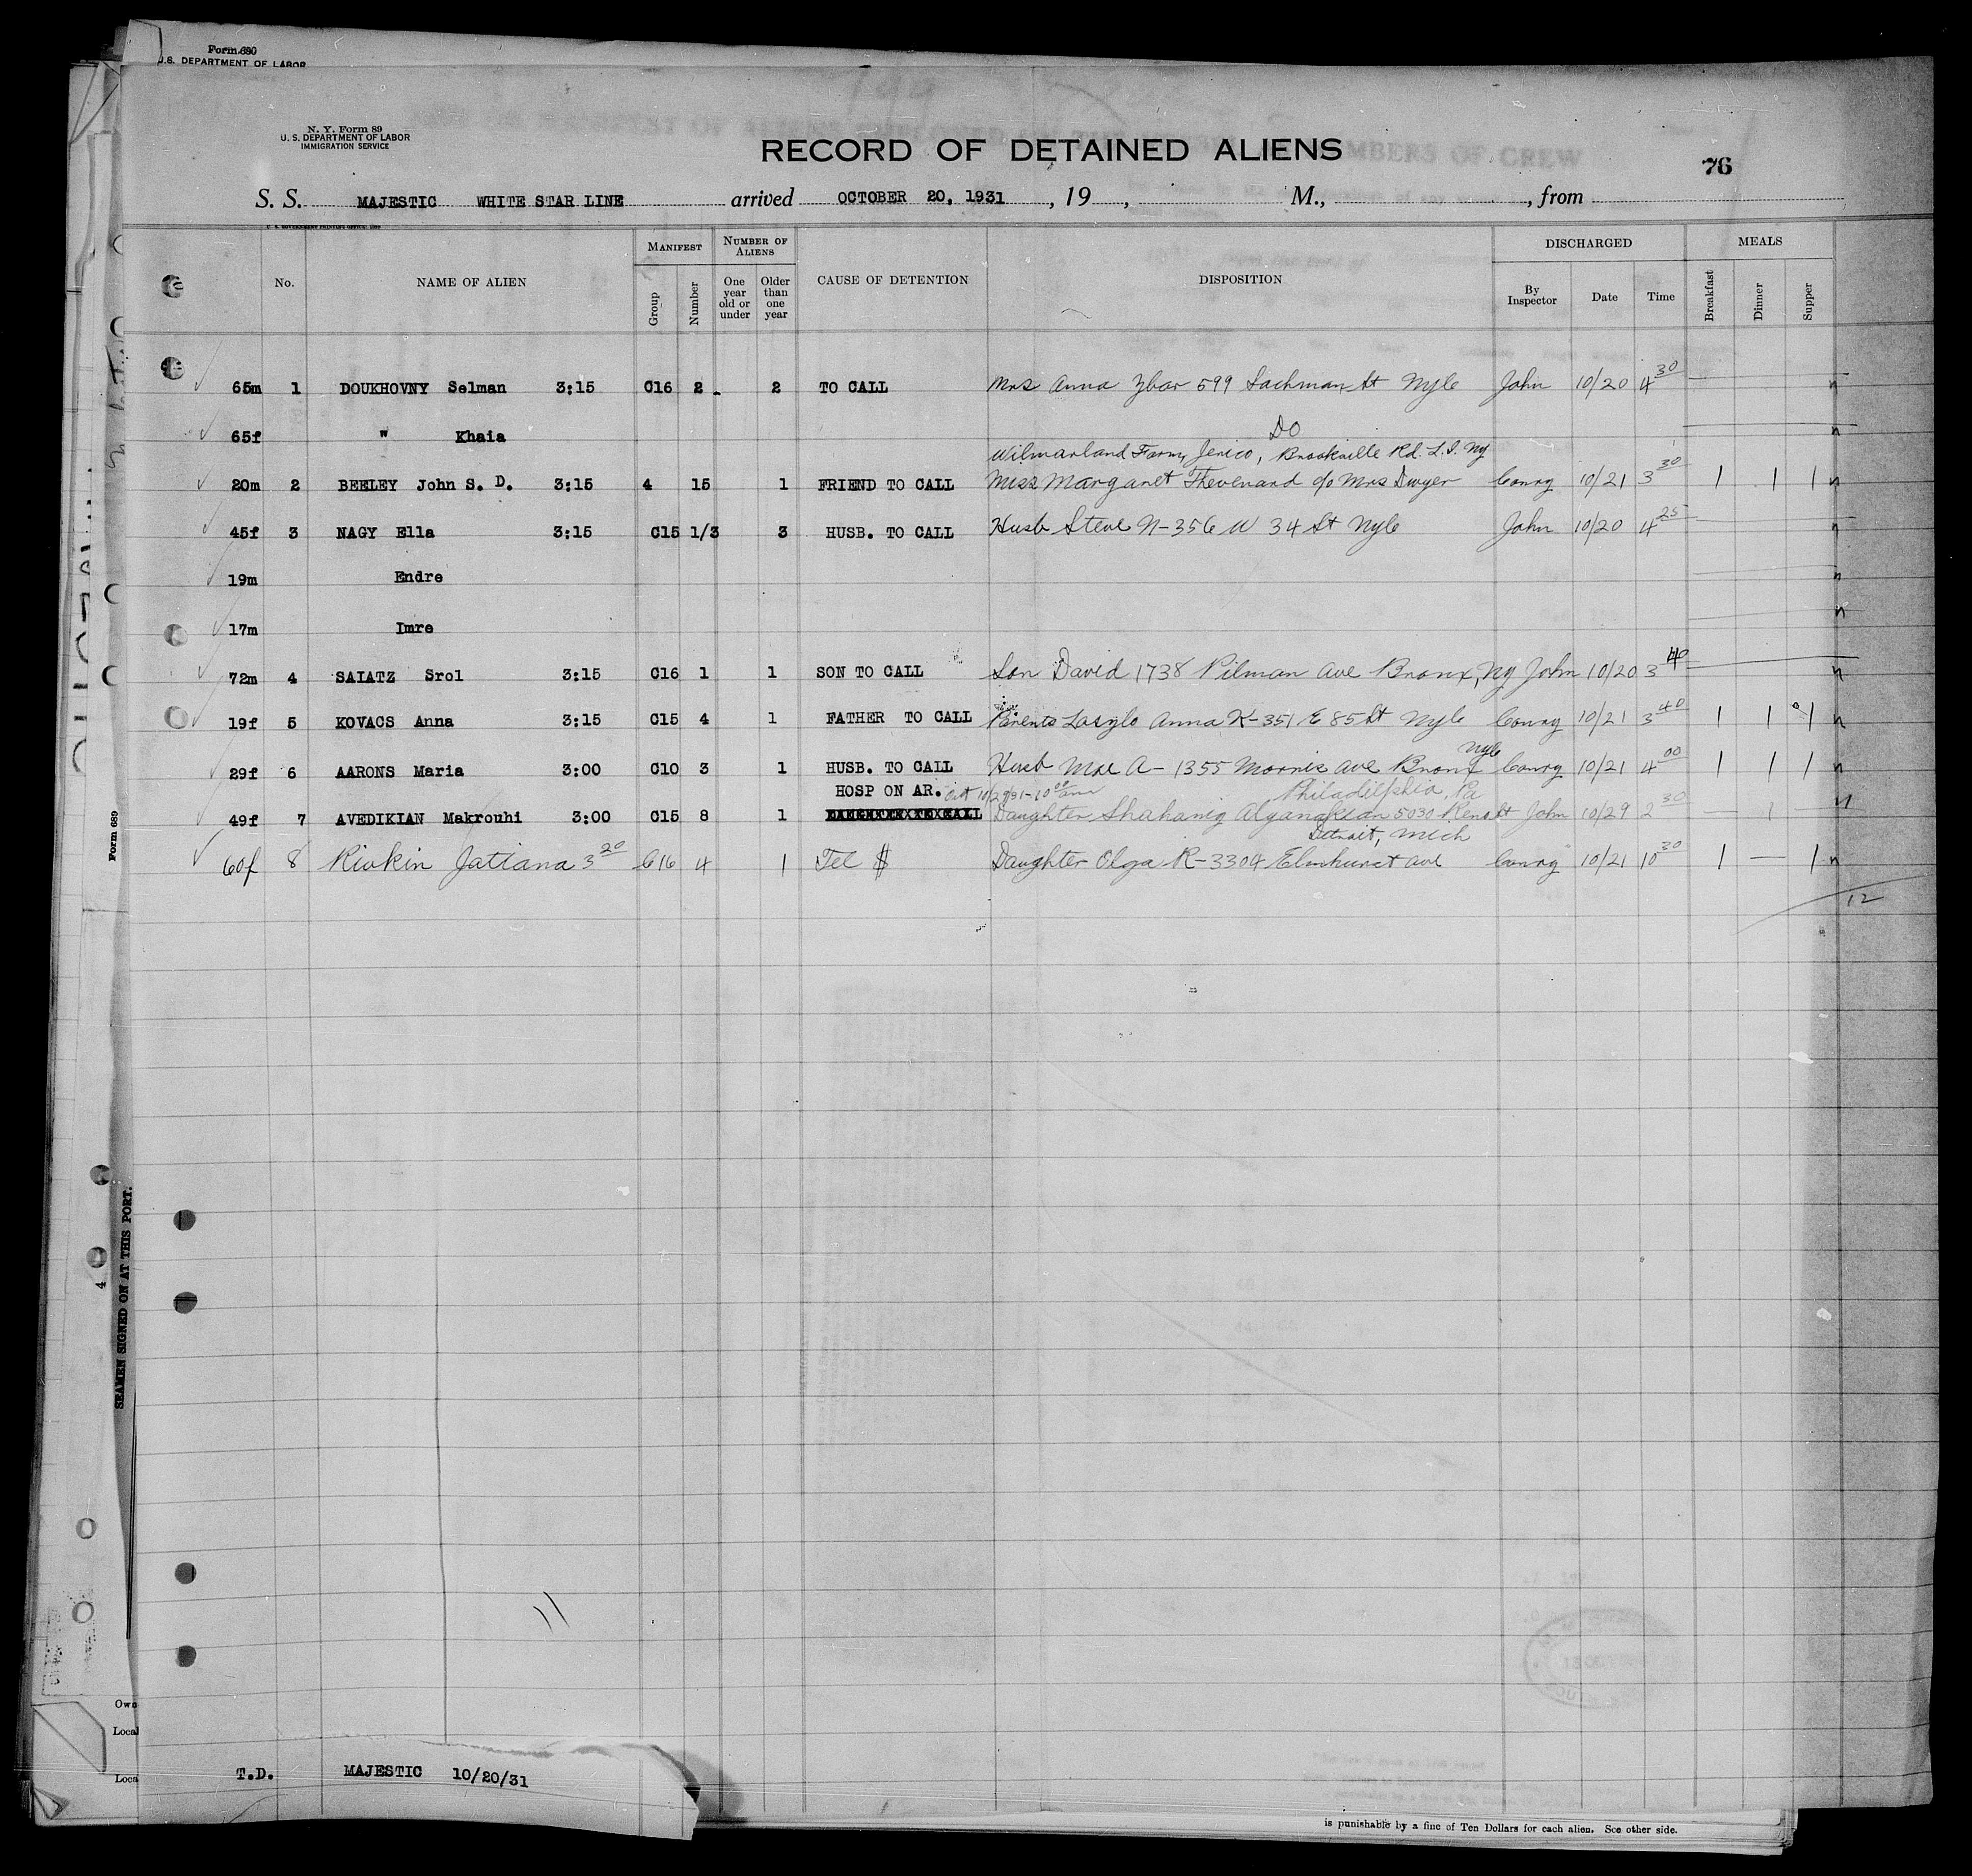 Form 680
U.S. DEPARTMENT OF LABOR
N. Y. Form 89
U. S. DEPARTMENT OF LABOR
IMMIGRATION SERVICE
RECORD OF DETAINED ALIENS
MBERS OF CREW
76
S. S. MAJESTIC WHITE STAR LINE arrived OCTOBER 20, 1931, 19 , M., , from
U. S. GOVERNMENT PRINTING OFFICE
No. NAME OF ALIEN MANIFEST Group Number NUMBER OF ALIENS One year old or under Older than one year CAUSE OF DETENTION DISPOSITION DISCHARGED By Inspector Date Time MEALS Breakfast Dinner Supper
65m 1 DOUKHOVNY Selman 3:15 C16 2 2 TO CALL Mrs Anna 599 St NYC John 10/20 4 30 n
65f " Khaia DO n
Farm, Jerico, Brookville Rd. L.I. NY
20m 2 BEELEY John S. D. 3:15 4 15 1 FRIEND TO CALL Miss Margaret Thevenard c/o Mrs Dwyer Conry 10/21 3 30 1 1 1 n
45f 3 NAGY Ella 3:15 C15 1/3 3 HUSB. TO CALL Husb Steve N-356 W 34 St NYC John 10/20 4 25 n
19m Endre n
17m Imre n
72m 4 SAIATZ Srol 3:15 C16 1 1 SON TO CALL Son David 1738 Pilman Ave Bronx, NY John 10/20 3 40 n
19f 5 KOVACS Anna 3:15 C15 4 1 FATHER TO CALL Parents Laszlo Anna K-351 E 85 St NYC Conry 10/21 3 40 1 1 1 n
29f 6 AARONS Maria 3:00 C10 3 1 HUSB. TO CALL Husb Max A- 1355 Morris Ave Bronx NYC Conry 10/21 4 00 1 1 1 n
HOSP ON AR. 10/29/31-10 00 am Philadelphia, Pa
49f 7 AVEDIKIAN Makrouhi 3:00 C15 8 1 DAUGHTER TO CALL Daughter Shahanig 5030 St John 10/29 2 30 — 1 — n
Detroit, Mich
60f 8 Rivkin Tatiana 3 20 C16 4 1 Tel $ Daughter Olga R-3304 Elmhurst Ave Conry 10/21 10 30 1 — 1 n
12
11
Form 689
4
SEAMEN SIGNED ON AT THIS PORT.
Own
Local
Loca
T.D. MAJESTIC 10/20/31
is punishable by a fine of Ten Dollars for each alien. See other side.